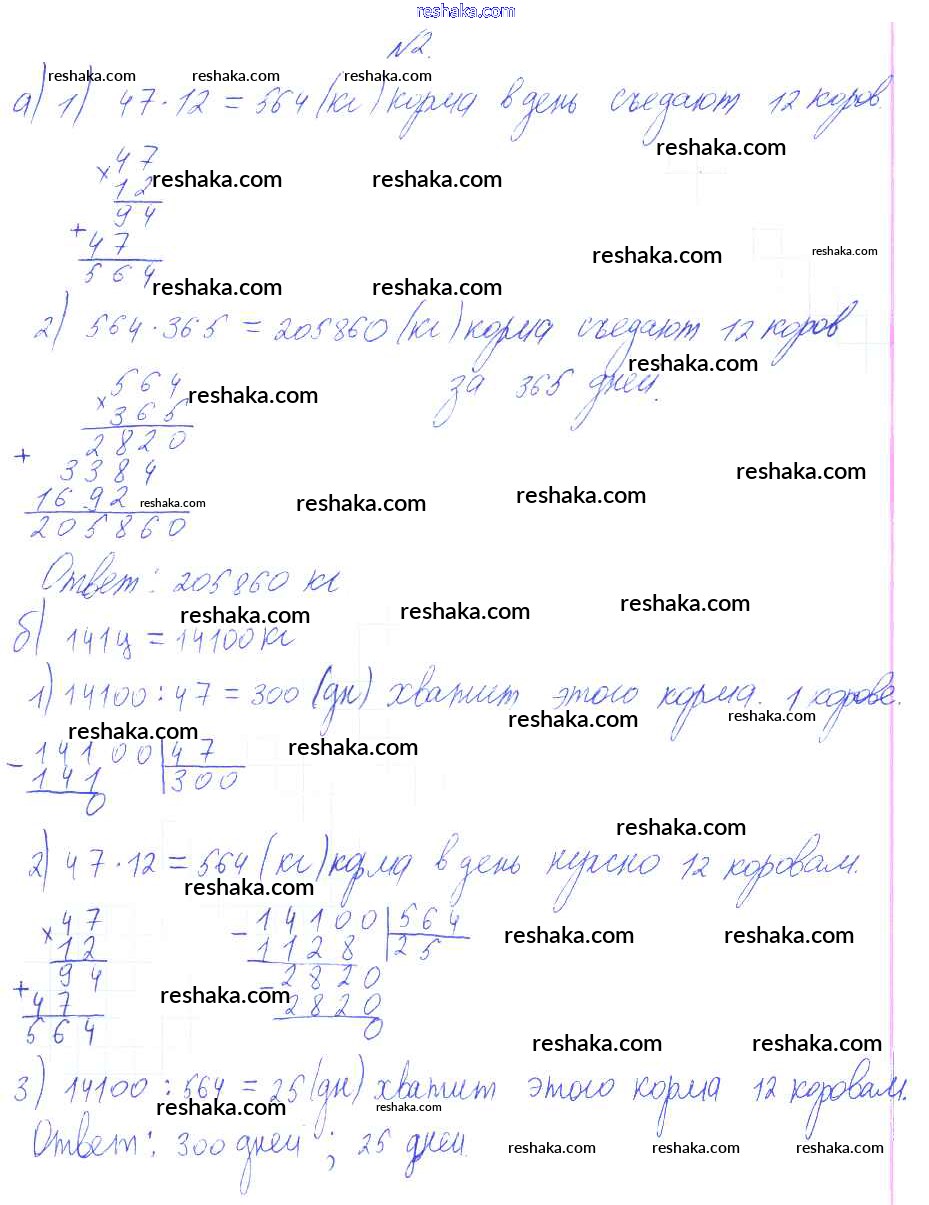 reshaka.com
№2.
reshaka.com reshaka.com reshaka.com
а) 1) 47 · 12 = 564 (кг) корма в день съедают 12 коров
reshaka.com
× 47
12 reshaka.com reshaka.com
94
+ 47
reshaka.com reshaka.com
564
reshaka.com reshaka.com
2) 564 · 365 = 205860 (кг) корма съедают 12 коров
reshaka.com
за 365 дней.
× 564
365 reshaka.com
2820
+ 3384
reshaka.com
1692 reshaka.com reshaka.com reshaka.com
205860
Ответ: 205860 кг
reshaka.com reshaka.com reshaka.com
б) 141ц = 14100 кг
1) 14100 : 47 = 300 (дн) хватит этого корма. 1 корове.
reshaka.com reshaka.com
reshaka.com reshaka.com
- 14100 | 47
141 | 300
0
reshaka.com
2) 47 · 12 = 564 (кг) корма в день нужно 12 коровам.
reshaka.com
× 47
12
94
+ 47
564
- 14100 | 564
1128 | 25
- 2820
2820
0
reshaka.com reshaka.com
reshaka.com
reshaka.com reshaka.com
3) 14100 : 564 = 25 (дн) хватит этого корма 12 коровам.
reshaka.com reshaka.com
Ответ: 300 дней ; 25 дней.
reshaka.com reshaka.com reshaka.com